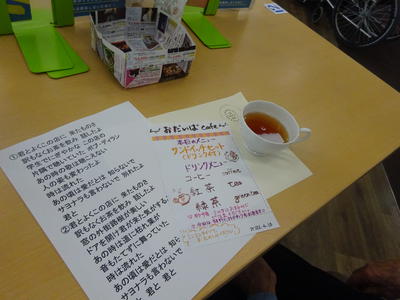 ①君とよくこの店に 来たものさ
訳もなくお茶を飲み 話したよ
学生でにぎやかな この店の
片隅で聴いていた ボブ・ディラン
あの時の歌は聴こえない
人の姿も変わったよ
時は流れた
あの頃は愛だとは 知らないで
サヨナラも言わないで 別れたよ
君と
②君とよくこの店に 来たものさ
訳もなくお茶を飲み 話したよ
窓の外 街路樹が美しい
ドアを開け 君が来る気がするよ
あの時は道に枯葉が
音もたてずに舞っていた
時は流れた
あの頃は愛だとは 知らないで
サヨナラも言わないで
君と 君と
～おだいば cafe～
本日のメニュー
サンドイッチセット
(ドリンク付)
ドリンクメニュー
コーヒー coffee
紅茶 tea
緑茶 green tea